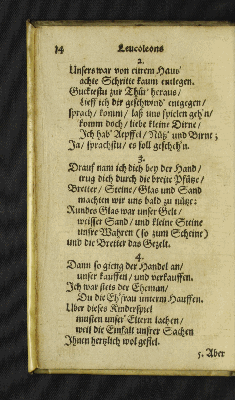 14 Leucoleons
2.
Unsers war von eurem Haus'
achte Schritte kaum entlegen.
Gucktestu zur Thür' heraus/
lieff ich dir geschwind' entgegen/
sprach/ komm/ laß uns spielen geh'n/
komm doch/ liebe kleine Dirne/
Ich hab' Aepffel/ Nüss' und Birne;
Ja/ sprachstu/ es soll gescheh'n.
3.
Drauf nam ich dich bey der Hand/
trug dich durch die breite Pfütze/
Bretter/ Steine/ Glas und Sand
machten wir uns bald zu nütze:
Rundes Glas war unser Gelt/
weisser Sand/ und kleine Steine
unsre Wahren (so zum Scheine)
und die Bretter das Gezelt.
4.
Dann so gieng der Handel an/
unser kauffen/ und verkauffen.
Ich war stets der Eheman/
Du die Eh'frau unterm Hauffen.
Uber dieses Kinderspiel
musten unser' Eltern lachen/
weil die Einfalt unsrer Sachen
Ihnen hertzlich wol gefiel.
5. Aber